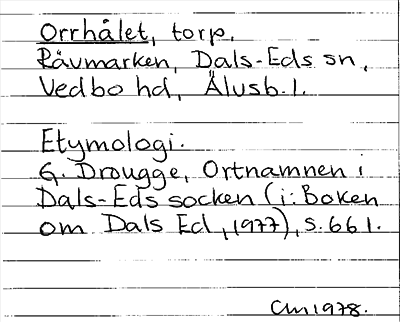 Orrhålet, torp.
Rävmarken, Dals-Eds sn,
Vedbo hd, Älvsb. l.
Etymologi.
G. Drougge, Ortnamnen i
Dals-Eds socken (i: Boken
om Dals Ed, 1977), s. 661.
CM 1978.